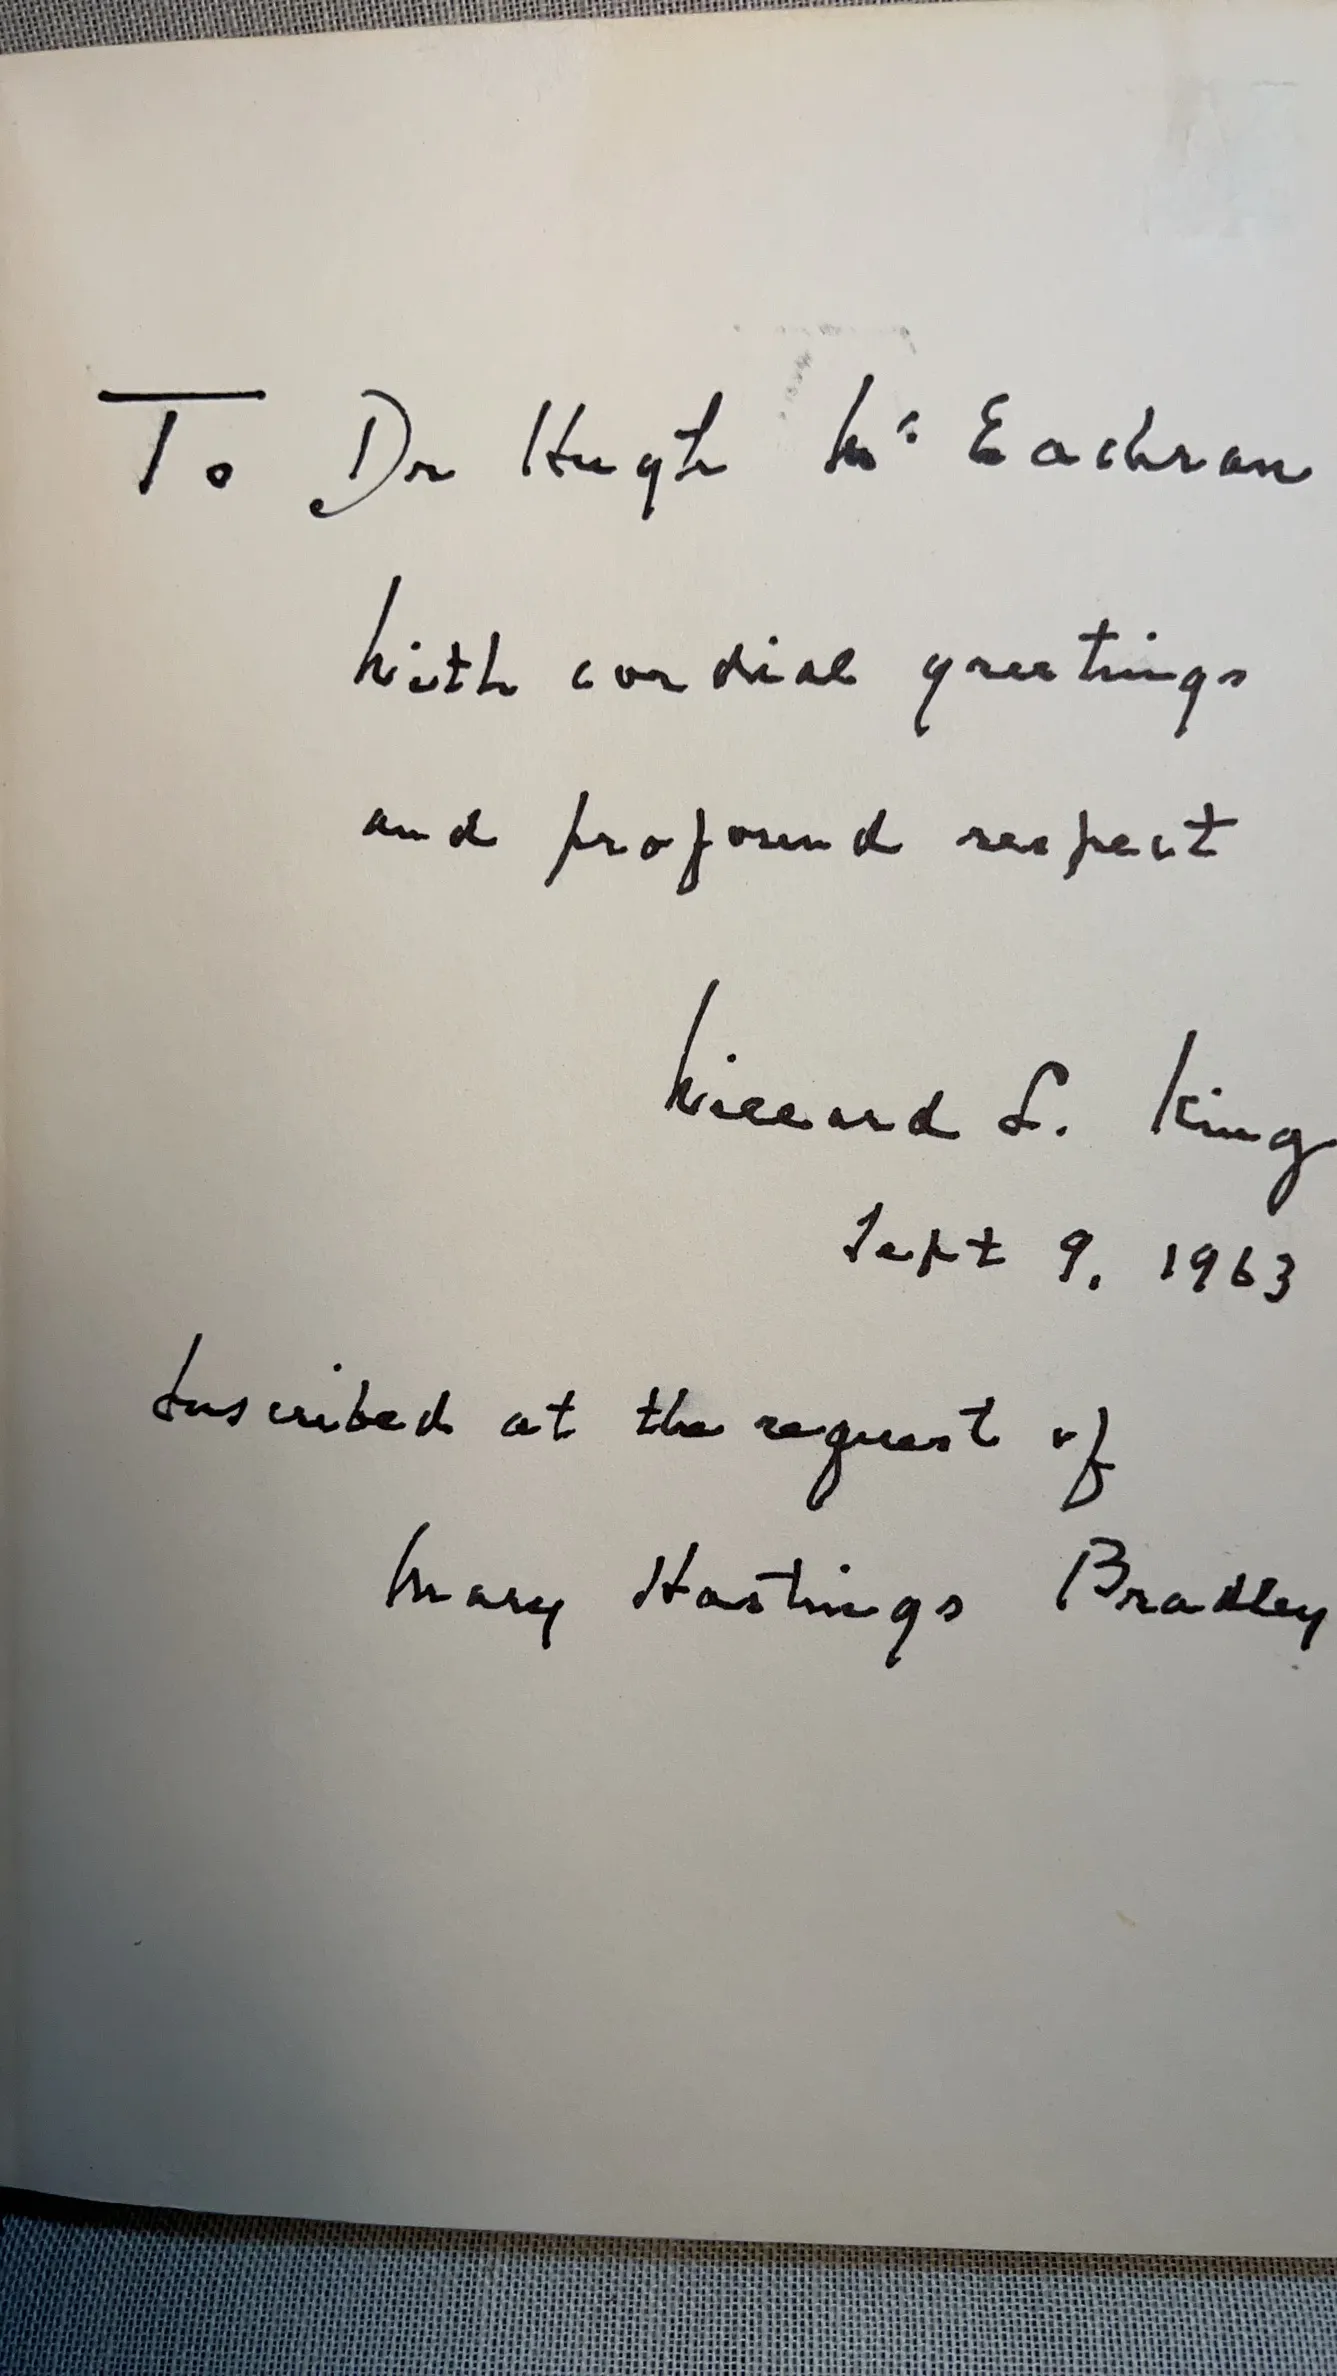 To Dr Hugh Mc Eachran
with cordial greetings
and profound respect
Willard L. King
Sept 9, 1963
Inscribed at the request of
Mary Hastings Bradley